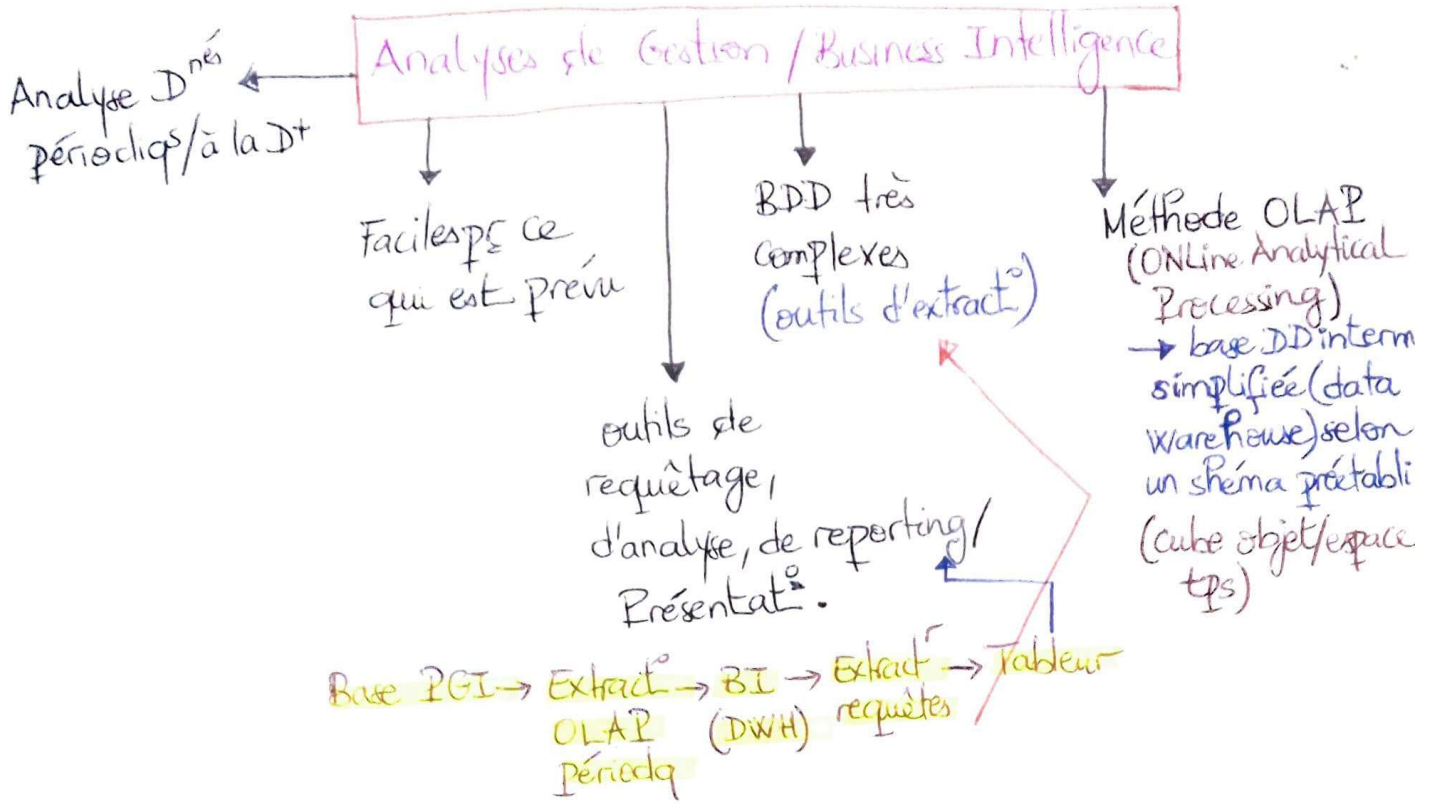 Analyses de Gestion / Business Intelligence
Analyse Dnés
périodiqs/à la D+
Faciles pr ce
qui est prévu
outils de
requêtage,
d'analyse, de reporting/
Présentat°.
BDD très
complexes
(outils d'extract°)
Méthode OLAP
(ONLine Analytical
Processing)
→ base DD interm
simplifiée (data
warehouse) selon
un shéma préétabli
(cube objet/espace
tps)
Base PGI → Extract° → BI → Extract r → Tableur
OLAP (DWH) requêtes
périodq